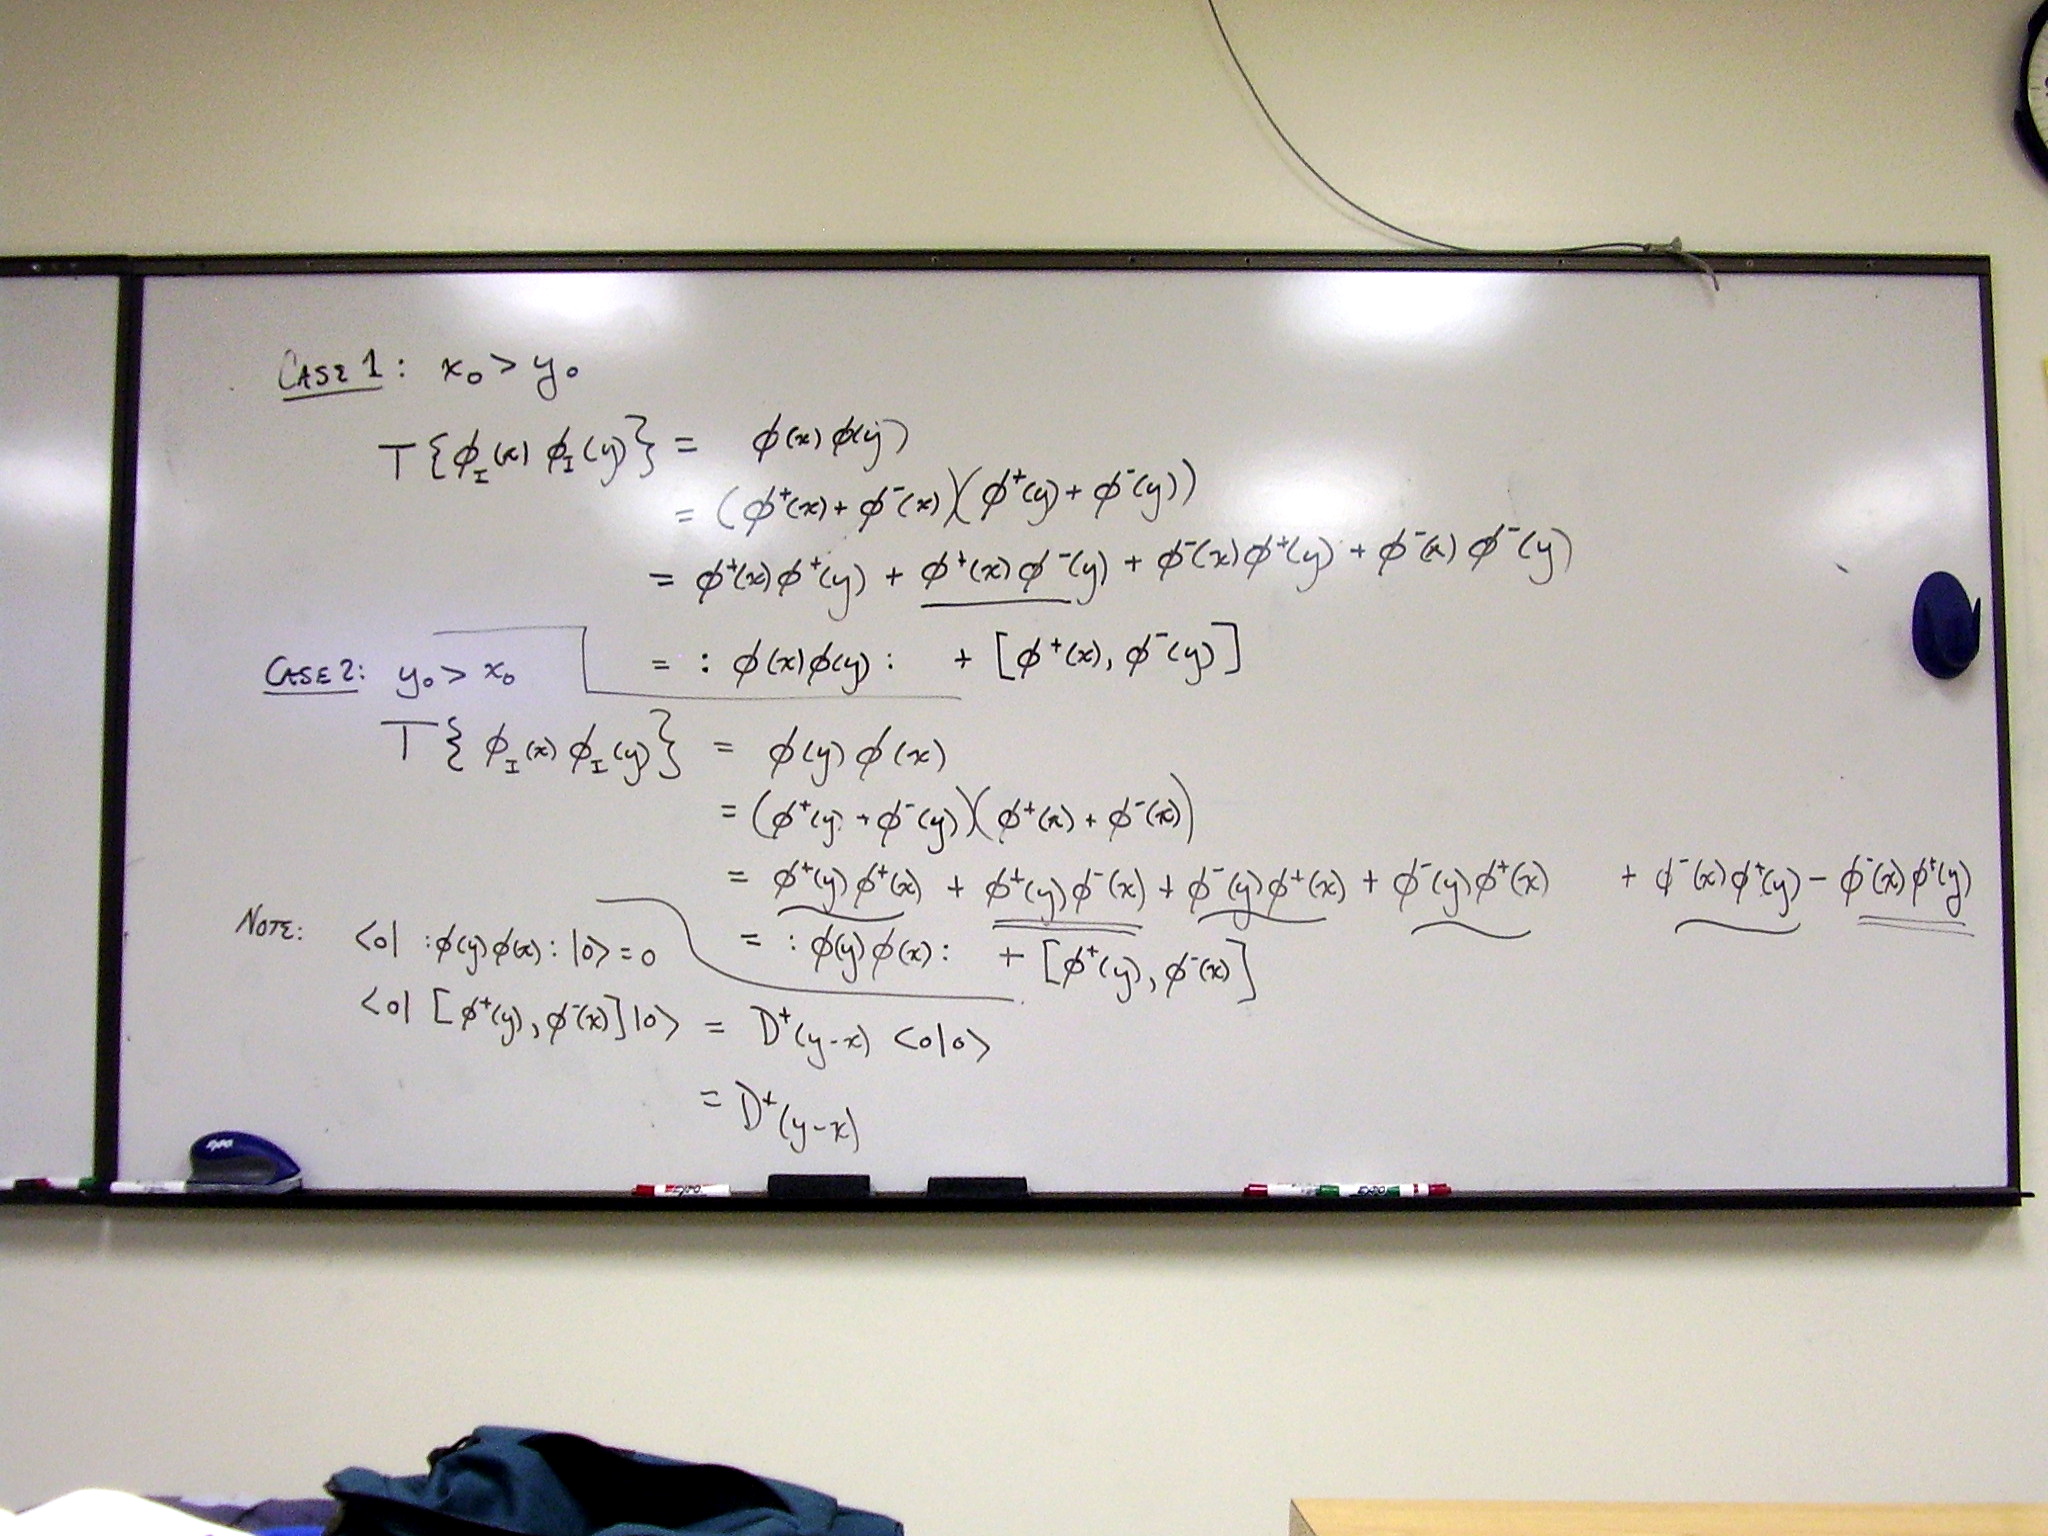 CASE 1: x₀ > y₀
T{ϕ_I(x) ϕ_I(y)} = ϕ(x) ϕ(y)
= (ϕ⁺(x) + ϕ⁻(x))(ϕ⁺(y) + ϕ⁻(y))
= ϕ⁺(x)ϕ⁺(y) + ϕ⁺(x)ϕ⁻(y) + ϕ⁻(x)ϕ⁺(y) + ϕ⁻(x)ϕ⁻(y)
= :ϕ(x)ϕ(y): + [ϕ⁺(x), ϕ⁻(y)]
CASE 2: y₀ > x₀
T{ϕ_I(x) ϕ_I(y)} = ϕ(y) ϕ(x)
= (ϕ⁺(y) + ϕ⁻(y))(ϕ⁺(x) + ϕ⁻(x))
= ϕ⁺(y)ϕ⁺(x) + ϕ⁺(y)ϕ⁻(x) + ϕ⁻(y)ϕ⁺(x) + ϕ⁻(y)ϕ⁺(x) + ϕ⁻(x)ϕ⁺(y) - ϕ⁻(x)ϕ⁺(y)
= :ϕ(y)ϕ(x): + [ϕ⁺(y), ϕ⁻(x)]
NOTE: <0| :ϕ(y)ϕ(x): |0> = 0
<0| [ϕ⁺(y), ϕ⁻(x)] |0> = D⁺(y-x) <0|0>
= D⁺(y-x)
EXPO
EXPO
EXPO